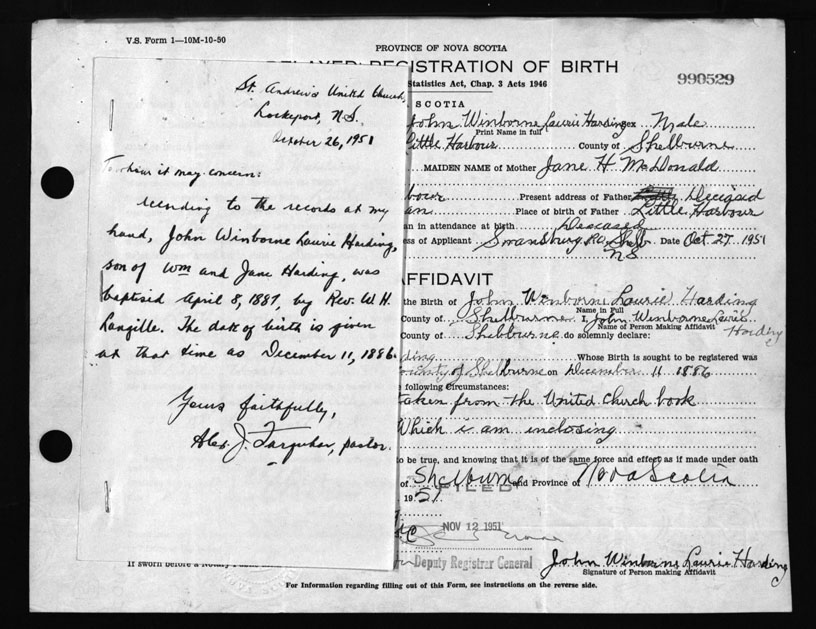 V.S. Form 1—10M-10-50
PROVINCE OF NOVA SCOTIA
REGISTRATION OF BIRTH
990529
Statistics Act, Chap. 3 Acts 1946
SCOTIA
John Winborne Laurie Harding Sex Male
Print Name in full
Little Harbour County of Shelburne
MAIDEN NAME of Mother Jane H McDonald
bour Present address of Father Decised
an Place of birth of Father Little Harbour
an in attendance at birth Deseased
ss of Applicant Swansburg RD, Shelb. Date Oct 27 1951
NS
St. Andrew's United Church,
Lockeport, N.S.
October 26, 1951
To whom it may concern:
According to the records at my
hand, John Winborne Laurie Harding,
son of Wm and Jane Harding, was
baptised April 8, 1887, by Rev. W. H.
Langille. The date of birth is given
at that time as December 11, 1886.
Yours faithfully,
Alex. J. Farquhar, pastor.
FFIDAVIT
the Birth of John Winborne Laurie Harding
Name in Full
County of Shelburne I, John Winborne Laurie
Name of Person Making Affidavit
Harding
County of Shelbourne do solemnly declare:
ding Whose Birth is sought to be registered was
County of Shelburne on December 11 1886
following Circumstances:
taken from the United Church book
Which i am inclosing
to be true, and knowing that it is of the same force and effect as if made under oath
of Shelburn and Province of Nova Scotia
FILED
1951
NOV 12 1951
Deputy Registrar General
If sworn before a Notary
John Winborne Laurie Harding
Signature of Person making Affidavit
For Information regarding filling out of this Form, see instructions on the reverse side.